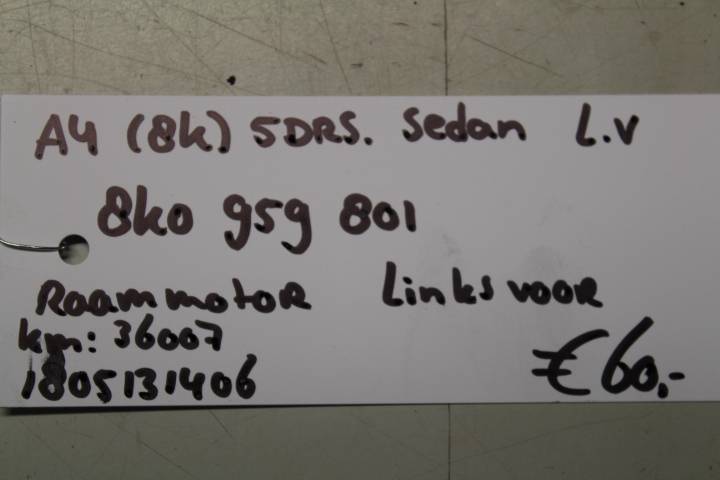 A4 (8k) 5DRS. Sedan L.V
8k0 959 801
Raammotor Links voor
km: 36007
1805131406
€60,-